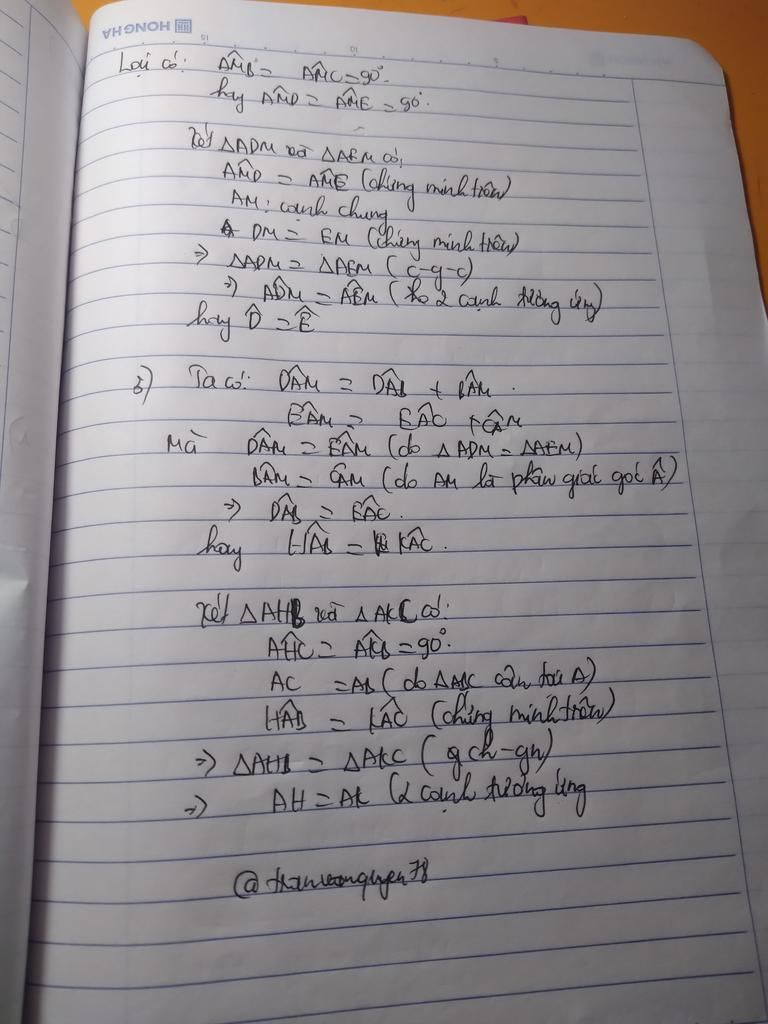 HONG HA
15 10 5
Lại có: AM̂B = AM̂C = 90°.
hay AM̂D = AM̂E = 90°.
Xét △ADM và △AEM có,
AM̂D = AM̂E (chứng minh trên)
AM: cạnh chung
DM = EM (chứng minh trên)
=> △ADM = △AEM (c-g-c)
=> AD̂M = AÊM ( 2 cạnh tương ứng)
hay D̂ = Ê
b) Ta có: DÂM = DÂB + BÂM.
EÂM = EÂC + CÂM
Mà DÂM = EÂM (do △ADM = △AEM)
BÂM = CÂM (do AM là phân giác góc Â)
=> DÂB = EÂC.
hay HÂB = KÂC.
Xét △AHB và △AKC có:
AĤC = AK̂B = 90°.
AC = AB (do △ABC cân tại A)
HÂB = KÂC (chứng minh trên)
=> △AHB = △AKC (ch-gn)
=> AH = AK (2 cạnh tương ứng